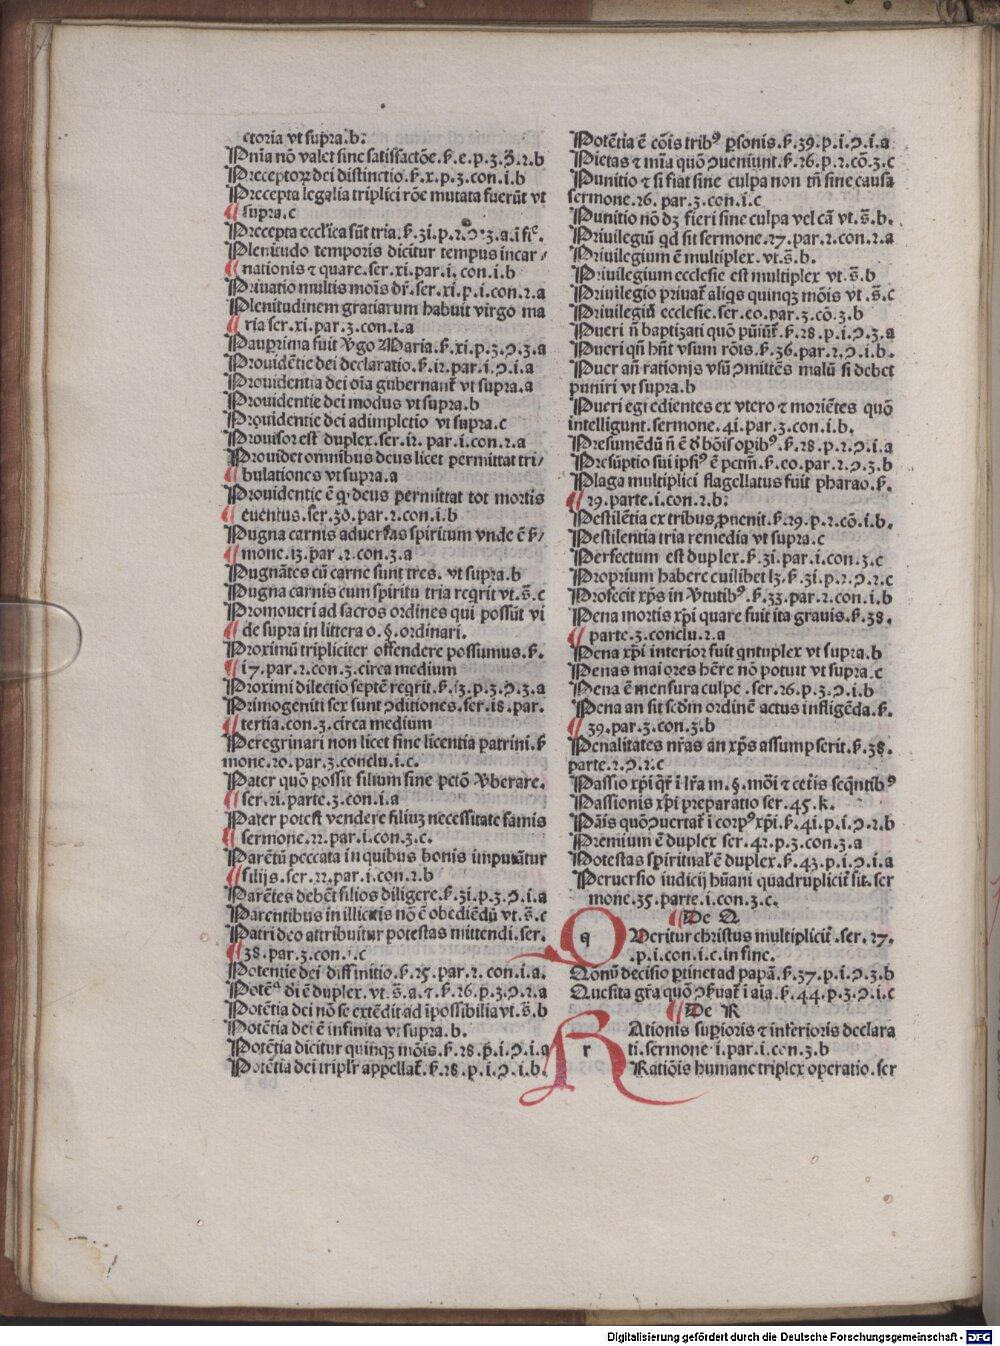 ctoria vt supra.b.
Pn̄ia nō valet sine satisfactōe.ẜ.e.p.3.ↄ̄.2.b
Preceptoꝝ dei distinctio.ẜ.x.p.3.con.i.b
Precepta legalia triplici rōe mutata fuerūt vt
¶ supra.c
Precepta eccl'ica sūt tria.ẜ.3i.p.2.ↄ.3.a.i fi.
Plenitudo temporis dicitur tempus incar/
¶ nationis ⁊ quare.ser.xi.par.i.con.i.b
Priuatio multis moīs dr̄.ser.xi.p.i.con.2.a
Plenitudinem gratiarum habuit virgo ma
¶ ria ser.xi.par.3.con.i.a
Pauprima fuit v̄go Maria.ẜ.xi.p.3.ↄ.3.a
Prouidētie dei declaratio.ẜ.i2.par.i.ↄ.i.a
Prouidentia dei oīa gubernant̄ vt supra.a
Prouidentie dei modus vt supra.b
Prouidentie dei adimpletio vt supra.c
Prouisor est duplex.ser.i2.par.i.con.2.a
Prouidet omnibus deus licet permittat tri/
¶ bulationes vt supra.a
Prouidentie ē ꝙ deus permittat tot mortis
¶ euentus.ser.30.par.2.con.i.b
Pugna carnis aduersas spiritum vnde ē ẜ/
¶ mone.i3.par.2.con.3.a
Pugnātes cū carne sunt tres. vt supra.b
Pugna carnis cum spiritu tria reqrit vt.s̄.c
Promoueri ad sacros ordines qui possūt vi
¶ de supra in littera o.§.ordinari.
Proximū tripliciter offendere possumus.ẜ.
¶ i7.par.2.con.3.circa medium
Proximi dilectio septē reqrit.ẜ.i3.p.3.ↄ.3.a
Primogeniti sex sunt ↄditiones.ser.i8.par.
¶ tertia.con.3.circa medium
Peregrinari non licet sine licentia patrini.ẜ
mone.20.par.3.conclu.i.c.
Pater quō possit filium sine petō v̄berare.
¶ ser.2i.parte.3.con.i.a
Pater potest vendere filiuȝ necessitate famis
¶ sermone.22.par.i.con.3.c.
Parētū peccata in quibus bonis imputātur
¶ filijs.ser.22.par.i.con.2.b
Parētes debēt filios diligere.ẜ.3i.p.3.ↄ.i.a
Parentibus in illicitis nō ē obediēdū vt.s̄.c
Patri deo attribuitur potestas mittendi.ser.
¶ 38.par.3.con.i.c
Potentie dei diffinitio.ẜ.25.par.2.con.i.a.
Potēᵃ dī ē duplex.vt.s̄.a.⁊.ẜ.26.p.3.ↄ.2.a
Potētia dei nō se extēdit ad īpossibilia vt.s̄.b
Potētia dei ē infinita vt supra.b.
Potētia dicitur quinqȝ mōis.ẜ.28.p.i.ↄ.i.a
Potētia dei triplr̄ appellat̄.ẜ.28.p.i.ↄ.i.b.
Potētia ē cōis tribꝰ ꝑsonis.ẜ.39.p.i.ↄ.i.a
Pietas ⁊ mīa quō ↄueniunt.ẜ.26.p.2.cō.3.c
Punitio ⁊ si fiat sine culpa non tn̄ sine causa
sermone.26. par.3.con.i.c
Punitio nō dȝ fieri sine culpa vel cā vt.s̄.b.
Priuilegiū qd sit sermone.27.par.2.con.2.a
Priuilegium ē multiplex. vt.s̄.b.
Priuilegium ecclesie est multiplex vt.s̄.b
Priuilegio priuat̄ aliqs quinqȝ mōis vt.s̄.c
Priuilegiū ecclesie.ser.eo.par.3.cō.3.b
Pueri n̄ baptizati quō pūiūt̄.ẜ.28.p.i.ↄ.3.a
Pueri qn̄ hn̄t vsum rōis.ẜ.36.par.2.ↄ.i.b.
Puer an̄ rationis vsū ↄmittēs malū si debet
puniri vt supra.b
Pueri egredientes ex vtero ⁊ moriētes quō
intelligunt.sermone.4i.par.3.con.i.b.
Presumēdū n̄ ē d̄ bōis oꝑibꝰ.ẜ.28.p.2.ↄ.i.a
Presūptio sui ipsiꝰ ē pctm̄.ẜ.eo.par.2.ↄ.3.b
Plaga multiplici flagellatus fuit pharao.ẜ.
¶ 29.parte.i.con.2.b.
Pestilētia ex tribus ꝓuenit.ẜ.29.p.2.cō.i.b.
Pestilentia tria remedia vt supra.c
Perfectum est duplex.ẜ.3i.par.i.con.3.c
Proprium habere cuilibet lȝ.ẜ.3i.p.2.ↄ.2.c
Profecit xp̄s in v̄tutibꝰ.ẜ.33.par.2.con.i.b
Pena mortis xp̄i quare fuit ita grauis.ẜ.38.
¶ parte.3.conclu.2.a
Pena xp̄i interior fuit qntuplex vt supra.b
Penas maiores hēre nō potuit vt supra.c
Pena ē mensura culpe .ser.26.p.3.ↄ.i.b
Pena an sit scd̄m ordinē actus infligēda.ẜ.
¶ 39.par.3.con.3.b
Penalitates nr̄as an xp̄s assumpserit.ẜ.38.
parte.2.ↄ.2.c
Passio xp̄i qr̄ ī lr̄a m.§.mōi ⁊ cet̄is seqntibꝰ
Passionis xp̄i preparatio ser.45.k.
Pāis quō ↄuertat̄ ī corpꝰ xp̄i.ẜ.4i.p.i.ↄ.2.b
Premium ē duplex ser.42.p.3.con.3.a
Potestas spiritual' ē duplex.ẜ.43.p.i.ↄ.i.a
Peruersio iudicij hūani quadruplicit̄ fit.ser
mone.35.parte.i.con.3.c.
¶ De Q
QVeritur christus multiplicit̄ .ser.27.
.p.i.con.i.c.in fine.
Qonū decisio ꝑtinet ad papā.ẜ.37.p.i.ↄ.3.b
Quesita gr̄a quō ↄẜuat̄ ī aīa.ẜ.44.p.3.ↄ.i.c
¶ De R
RAtionis supioris ⁊ inferioris declara
ti.sermone i.par.i.con.3.b
Ratiōis humane triplex operatio.ser
Digitalisierung gefördert durch die Deutsche Forschungsgemeinschaft - DFG